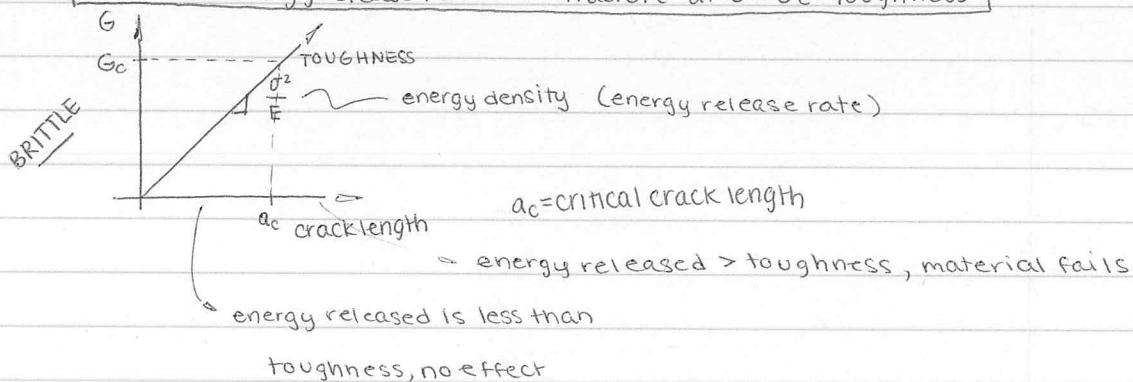 toughness
G
Gc
TOUGHNESS
σ²
E
energy density (energy release rate)
BRITTLE
ac
crack length
ac=critical crack length
energy released > toughness, material fails
energy released is less than
toughness, no effect